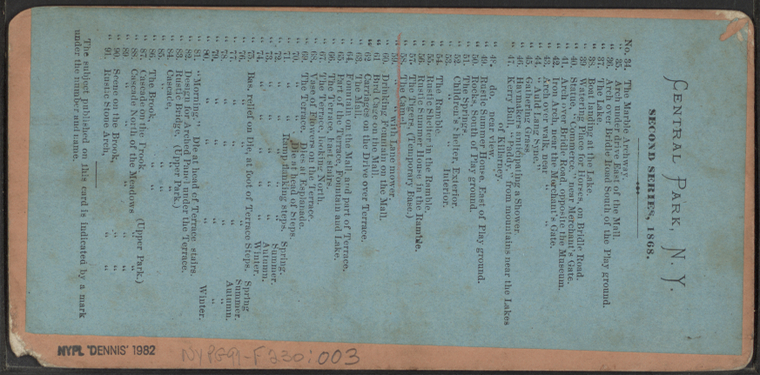 CENTRAL PARK, N. Y.
SECOND SERIES, 1868.
No. 34. The Marble Archway.
35. Arch under Drive East of the Mall
36. Arch over Bridle Road South of the Play ground.
37. The Lake.
38. Boat landing at the Lake.
39. Watering Place for Horses, on Bridle Road.
40. Statue, "Commerce," near Merchant's Gate.
41. Arch over Bridle Road, opposite the Museum.
42. Iron Arch, near the Merchant's Gate.
43. Arch over walk, near " "
44. Child
45. Gathering Grass.
46. anticipating a Shower
47. Kerry Bull, "Paddy," from mountains near the Lakes
of Killarney.
48. do. near view.
49. Rustic Summer House, East of Play ground.
50. Rocks, South of Play ground.
51. The Spring.
52. Children's Shelter, Exterior.
53. " " Interior.
54. The Ramble.
55. Rustic Shelter in the Ramble.
56. Rustic Summer House in the Ramble.
57. The Tigers, (Temporary Base.)
58. The Camel
59. " with Lawn mower
60. Drinking Fountain on the Mall.
61. Bird Cage on the Mall.
62. Carriages on the Drive over Terrace.
63. The Mall.
64. Fountain on the Mall and part of Terrace.
65. Part of the Terrace, Fountain and Lake.
66. The Terrace, East stairs.
67. The Terrace, looking North.
68. Vase of Flowers on the Terrace.
69. The Terrace. Dies at Esplanade.
70. " Die at head of Steps.
71. " steps. Spring.
72. " " Summer.
73. " " Autumn.
74. " " Winter.
75. Bas. relief on Die, at foot of Terrace Steps, Spring
76. " " Summer.
77. " " Autumn.
78. " "
79. " "
80. " " Winter.
81. "Morning." Die at head of Terrace stairs.
82. Design in Arched Panel under the Terrace.
83. Rustic Bridge, (Upper Park.)
84. Cascade, "
85. " "
86. The Brook, "
87. Cascade on the Brook (Upper Park.)
88. Cascade North of the Meadows "
89. " "
90. Scene on the Brook, "
91. Rustic Stone Arch, "
The subject published on this card is indicated by a mark
under the number and name.
NYPL 'DENNIS' 1982
NYPG91-F230:003